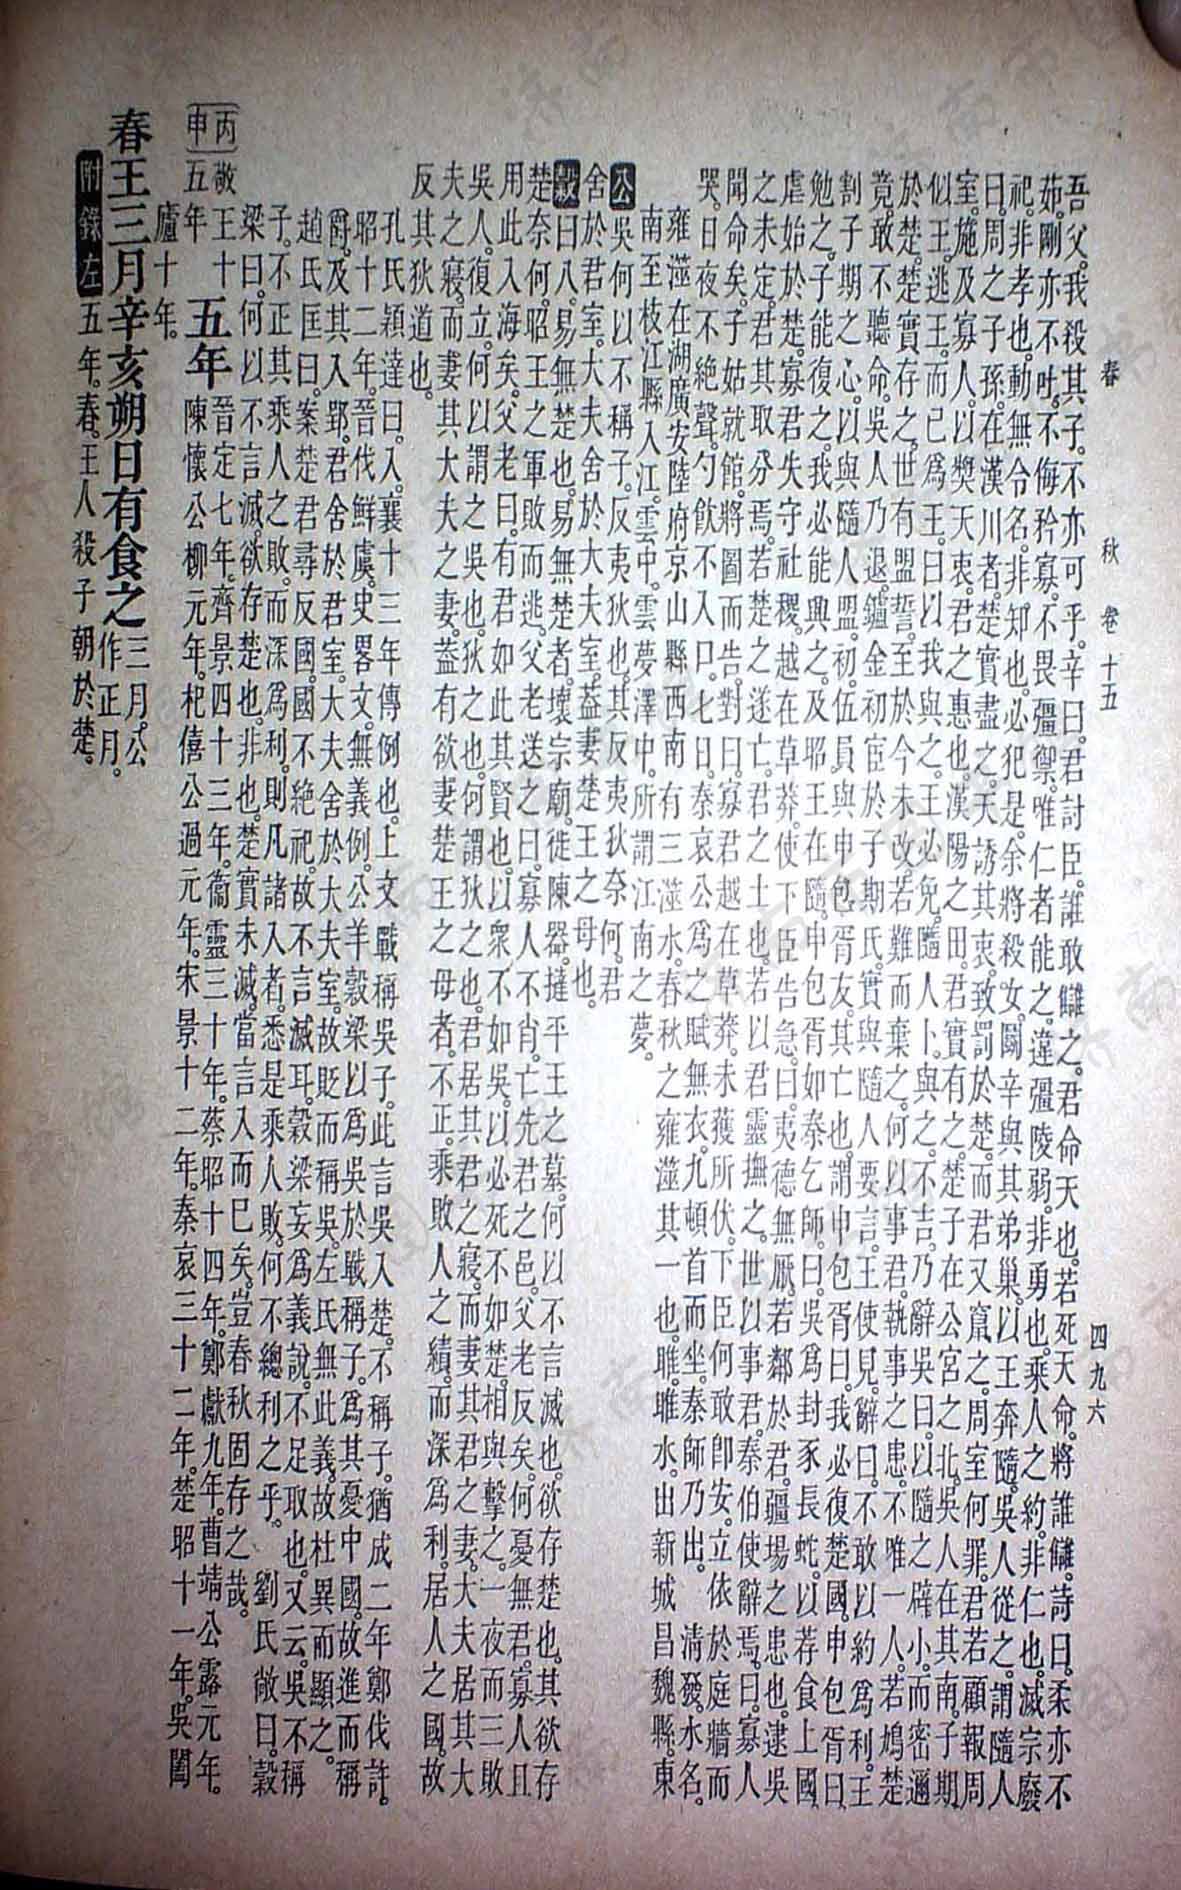 春秋 卷十五 四九六
吾父。我殺其子。不亦可乎。辛曰。君討臣。誰敢讎之。君命天也。若死天命。將誰讎。詩曰。柔亦不
茹。剛亦不吐。不侮矜寡。不畏彊禦。唯仁者能之。違彊陵弱。非勇也。乘人之約。非仁也。滅宗廢
祀。非孝也。動無令名。非知也。必犯是。余將殺女。鬬辛與其弟巢。以王奔隨。吳人從之。謂隨人
曰。周之子孫。在漢川者。楚實盡之。天誘其衷。致罰於楚。而君又竄之。周室何罪。君若顧報周
室。施及寡人。以獎天衷。君之惠也。漢陽之田。君實有之。楚子在公宮之北。吳人在其南。子期
似王。逃王而已爲王。曰以我與之。王必免。隨人卜。與之。不吉。乃辭吳曰。以隨之辟小。而密邇
於楚。楚實存之。世有盟誓。至於今未改。若難而棄之。何以事君。執事之患。不唯一人。若鳩楚
竟。敢不聽命。吳人乃退。鑪金初宦於子期氏。實與隨人要言。王使見。辭曰。不敢以約爲利。王
割子期之心。以與隨人盟。初。伍員與申包胥友。其亡也。謂申包胥曰。我必復楚國。申包胥曰。
勉之。子能復之。我必能興之。及昭王在隨。申包胥如秦乞師。曰。吳爲封豕長蛇。以荐食上國。
虐始於楚。寡君失守社稷。越在草莽。使下臣告急。曰。夷德無厭。若鄰於君。疆場之患也。逮吳
之未定。君其取分焉。若楚之遂亡。君之土也。若以君靈撫之。世以事君。秦伯使辭焉。曰。寡人
聞命矣。子姑就館。將圖而告。對曰。寡君越在草莽。未獲所伏。下臣何敢卽安。立依於庭牆而
哭。日夜不絕聲。勺飲不入口。七日。秦哀公爲之賦無衣。九頓首而坐。秦師乃出。 清發。水名。
雍澨在湖廣安陸府京山縣西南。有三澨水。春秋之雍澨其一也。睢。睢水。出新城昌魏縣。東
南至枝江縣入江。雲中。雲夢澤中。所謂江南之夢。
公吳何以不稱子。反夷狄也。其反夷狄奈何。君
舍於君室。大夫舍於大夫室。蓋妻楚王之母也。
穀曰入。易無楚也。易無楚者。壞宗廟。徙陳器。撻平王之墓。何以不言滅也。欲存楚也。其欲存
楚奈何。昭王之軍敗而逃。父老送之曰。寡人不肖。亡先君之邑。父老反矣。何憂無君。寡人且
用此入海矣。父老曰。有君如此其賢也。以衆不如吳。以必死不如楚。相與擊之。一夜而三敗
吳人。復立。何以謂之吳也。狄之也。何謂狄之也。君居其君之寢。而妻其君之妻。大夫居其大
夫之寢。而妻其大夫之妻。蓋有欲妻楚王之母者。不正。乘敗人之績。而深爲利。居人之國。故
反其狄道也。
孔氏穎達曰。入。襄十三年傳例也。上文戰稱吳子。此言吳入楚。不稱子。猶成二年鄭伐許。
昭十二年。晉伐鮮虞。史畧文。無義例。公羊穀梁以爲吳於戰稱子。爲其憂中國。故進而稱
爵。及其入郢。君舍於君室。大夫舍於大夫室。故貶而稱吳。左氏無此義。故杜異而顯之。
趙氏匡曰。案楚君尋反國。國不絕祀。故不言滅耳。穀梁妄爲義說。不足取也。又云。吳不稱
子。不正其乘人之敗。而深爲利。則凡諸入者。悉是乘人敗。何不總利之乎。 劉氏敞曰。穀
梁曰。何以不言滅。欲存楚也。非也。楚實未滅。當言入而巳矣。豈春秋固存之哉。
丙申 敬王十五年 五年 晉定七年。齊景四十三年。衞靈三十年。蔡昭十四年。鄭獻九年。曹靖公露元年。
陳懷公柳元年。杞僖公過元年。宋景十二年。秦哀三十二年。楚昭十一年。吳闔
廬十年。
春王三月辛亥朔日有食之 三月。公作正月。
附錄左 五年。春。王人殺子朝於楚。